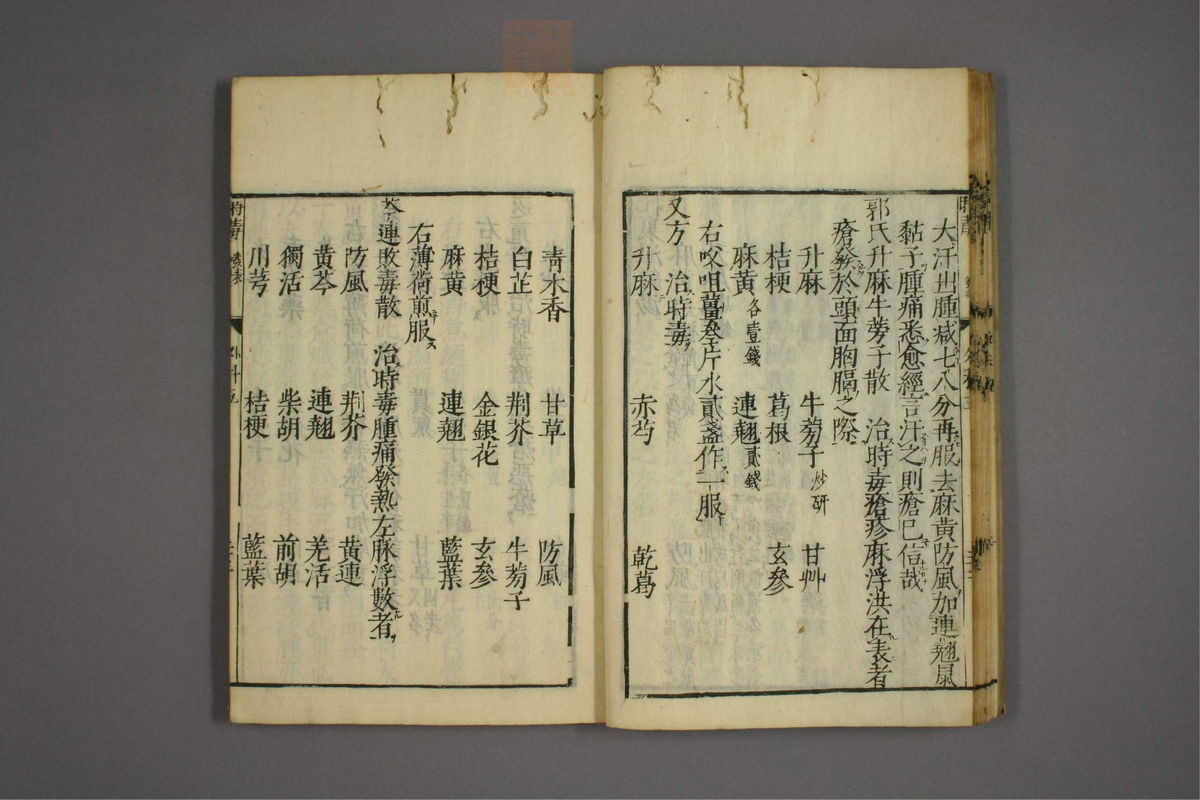 大汗出腫減七八分再服去麻黃防風加連翹鼠
黏子腫痛悉愈經言汗之則瘡已信哉
郭氏升麻牛蒡子散　治時毒瘡疹麻浮洪在表者
瘡發於頭面胸膈之際
升麻　牛蒡子炒研　甘艸
桔梗　葛根　玄參
麻黃各壹錢　連翹貳錢
右㕮咀薑叁片水貳盞作一服
又方　治時毒
升麻　赤芍　乾葛
青木香　甘草　防風
白芷　荆芥　牛蒡子
桔梗　金銀花　玄參
麻黃　連翹　藍葉
右薄荷煎服
連敗毒散　治時毒腫痛發熱左脉浮數者
防風　荆芥　黃連
黃芩　連翹　羗活
獨活　柴胡　前胡
川芎　桔梗　藍葉
外科五